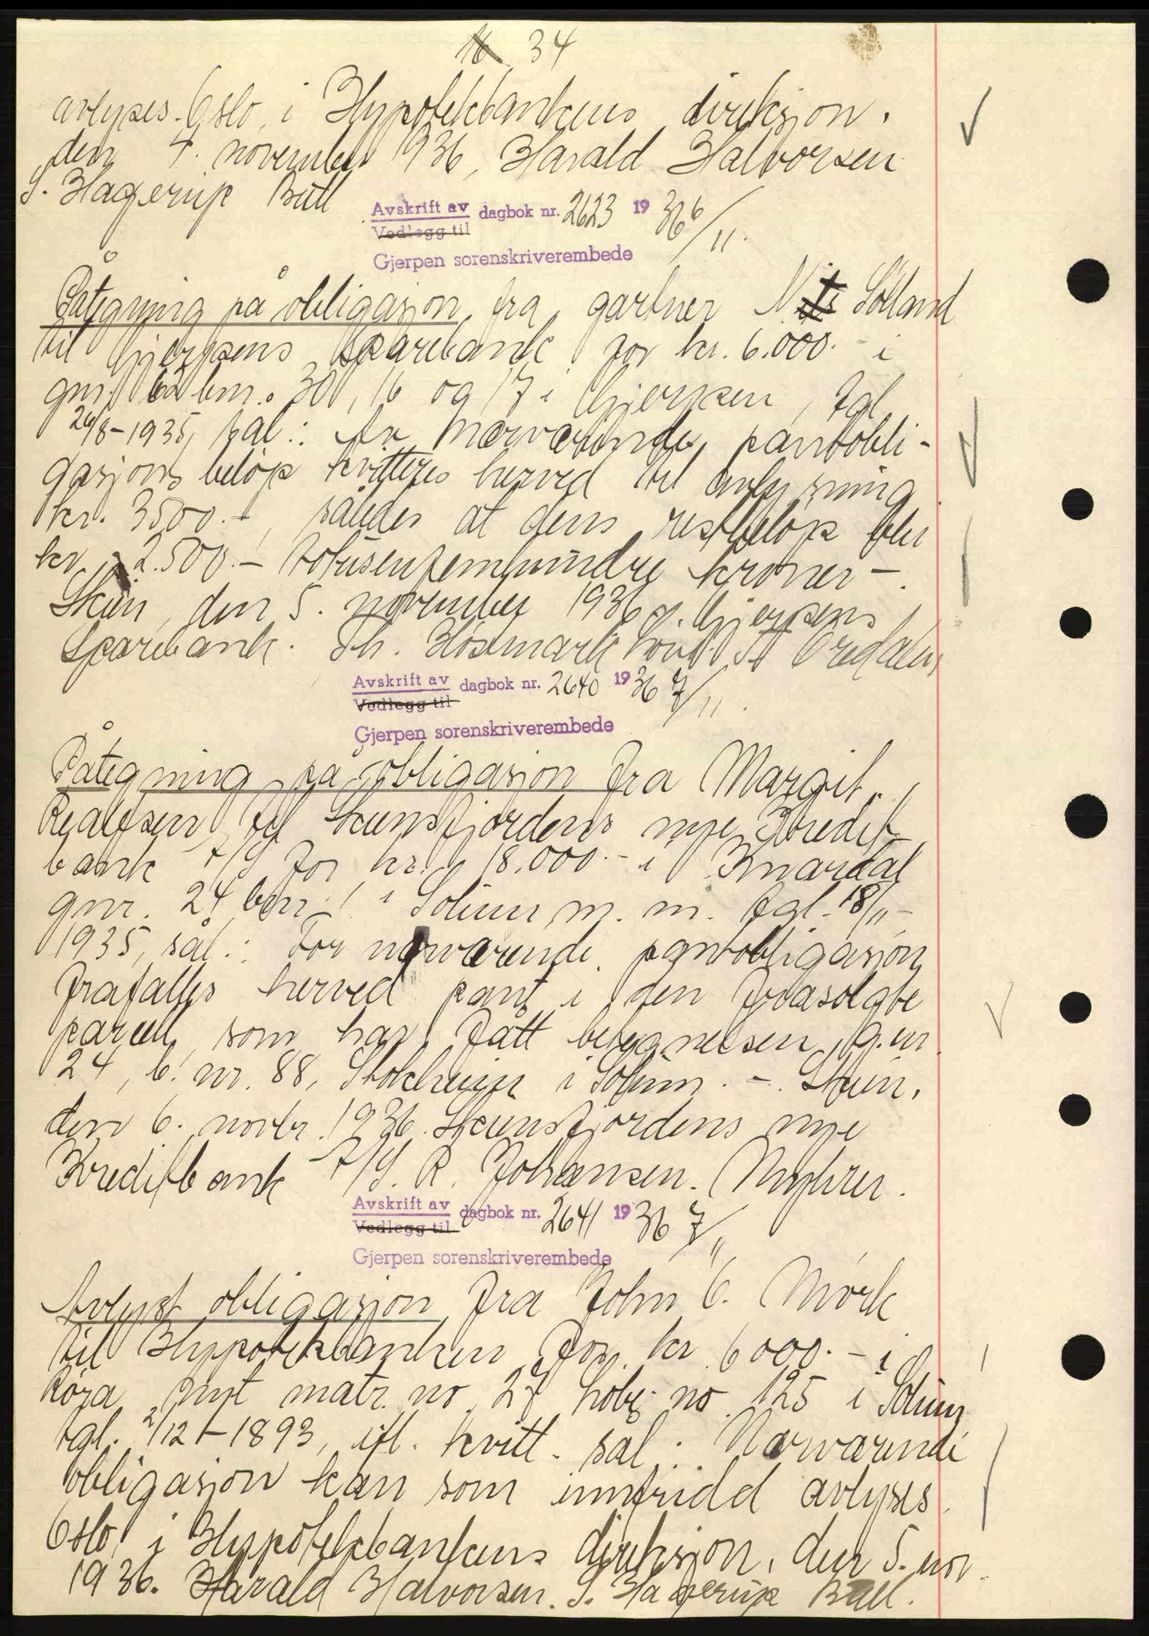 34
avlyses. Oslo, i Hypotekbankens direksjon.
den 4. november 1936, Harald Halvorsen
S. Hagerup Bull
Avskrift av dagbok nr. 2623 1936 6/11.
Vedlegg til
Gjerpen sorenskriverembede
Påtegning på obligasjon fra gartner Nils Solland
til Gjerpens Sparebank for kr. 6.000.- i
gnr. 62 bnr. 30, 16 og 17 i Gjerpen, tgl.
26/8-1935, sål.: Av nærværende pantobli-
gasjons beløp kvitteres herved til avlysning
kr. 3500.-, således at dens restbeløp blir
kr. 2.500.- totusenfemhundre kroner -.
Skien, den 5. november 1936. Gjerpens
Sparebank. Th.
Avskrift av dagbok nr. 2640 1936 7/11.
Vedlegg til
Gjerpen sorenskriverembede
Påtegning på obligasjon fra Margit
Realfsen til Skiensfjordens nye Kredit-
bank A/S for kr. 18.000.- i Knardal
gnr. 24 bnr. 1 i Solum m. m. tgl. 18/11-
1935, sål.: For nærværende pantobligasjon
frafalles herved pant i den frasolgte
parsell, som har fått betegnelsen g.nr.
24, b. nr. 88, i Solum. -. Skien,
den 6. novbr. 1936. Skiensfjordens nye
Kreditbank A/S. R. Johansen. Myhrer.
Avskrift av dagbok nr. 2641 1936 7/11
Vedlegg til
Gjerpen sorenskriverembede
Avlyst obligasjon fra John C. Mørk
til Hypotekbanken for kr. 6000.- i
Røra matr. no. 27 løbe no. 125 i Solum
tgl. 2/12-1893, ifl. kvitt. sål.: Nærværende
obligasjon kan som innfridd avlyses.
Oslo, i Hypotekbankens direksjon, den 5. nov.
1936. Harald Halvorsen. S. Hagerup Bull.